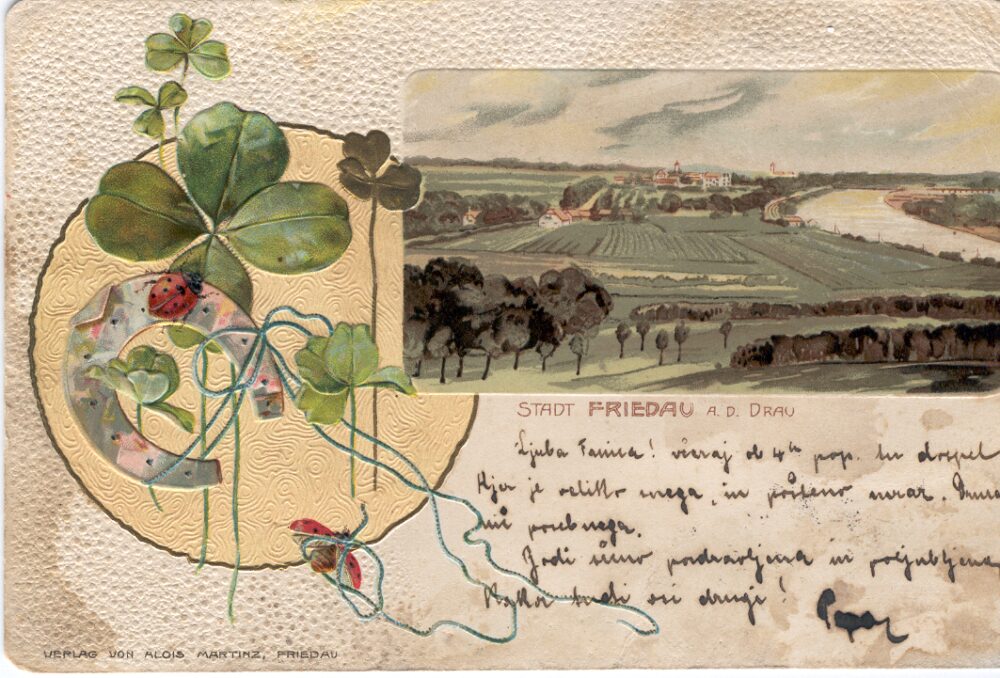 STADT FRIEDAU A. D. DRAU
Ljuba Fanica! včeraj ob 4th pop. tu dospel
Kjer je veliko snega, in pošteno mraz. Druzega
ni posebnega.
Bodi iskreno pozdravljena in poljubljena,
Kakor tudi vsi drugi!
VERLAG VON ALOIS MARTINZ, FRIEDAU